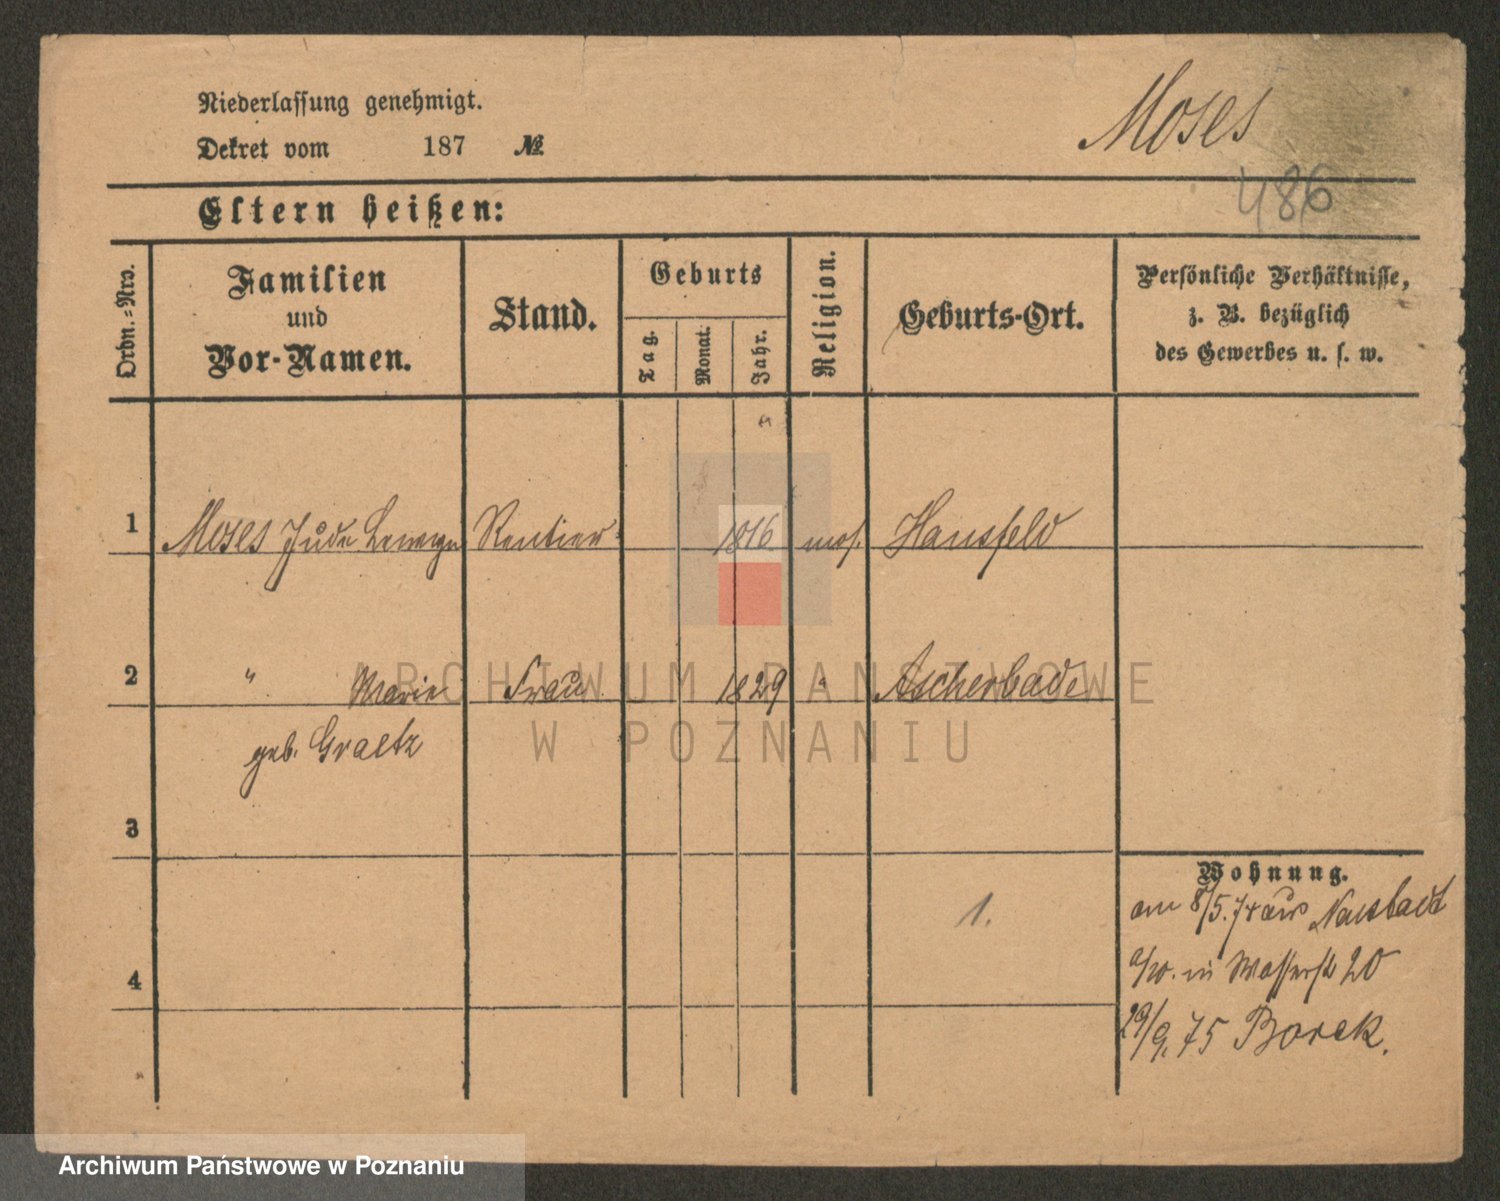 Niederlassung genehmigt.
Moses
Dekret vom 187 №
486
Eltern heißen:
Ordn.-Nro.
Familien
und
Vor-Namen.
Stand.
Geburts
Tag.
Monat.
Jahr.
Religion.
Geburts-Ort.
Persönliche Verhältnisse,
z. B. bezüglich
des Gewerbes u. s. w.
1 Moses Jude Rentier 1816 mos. Hansfeld
2 " Marie Frau 1829 " Ascherbude
geb. Graetz
3
Wohnung.
am 8/5.74 aus Neustadt
1.
a/W. in Wasserst 20
4
29/9.75 Borek.
ARCHIWUM PAŃSTWOWE
W POZNANIU
Archiwum Państwowe w Poznaniu